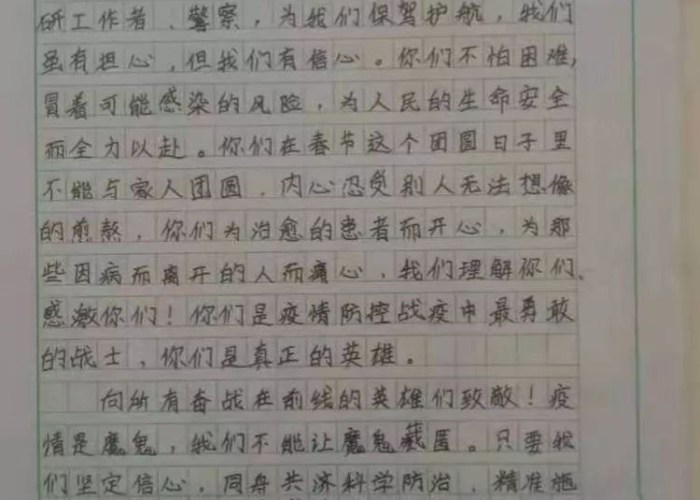 研工作者、警察，为我们保驾护航，我们
虽有担心，但我们有信心。你们不怕困难,
冒着可能感染的风险，为人民的生命安全
而全力以赴。你们在春节这个团圆日子里
不能与家人团圆，内心忍受别人无法想像
的煎熬，你们为治愈的患者而开心，为那
些因病而离开的人而痛心，我们理解你们、
感激你们！你们是疫情防控战疫中最勇敢
的战士，你们是真正的英雄。
向所有奋战在前线的英雄们致敬！疫
情是魔鬼，我们不能让魔鬼藏匿。只要我
们坚定信心，同舟共济科学防治，精准施